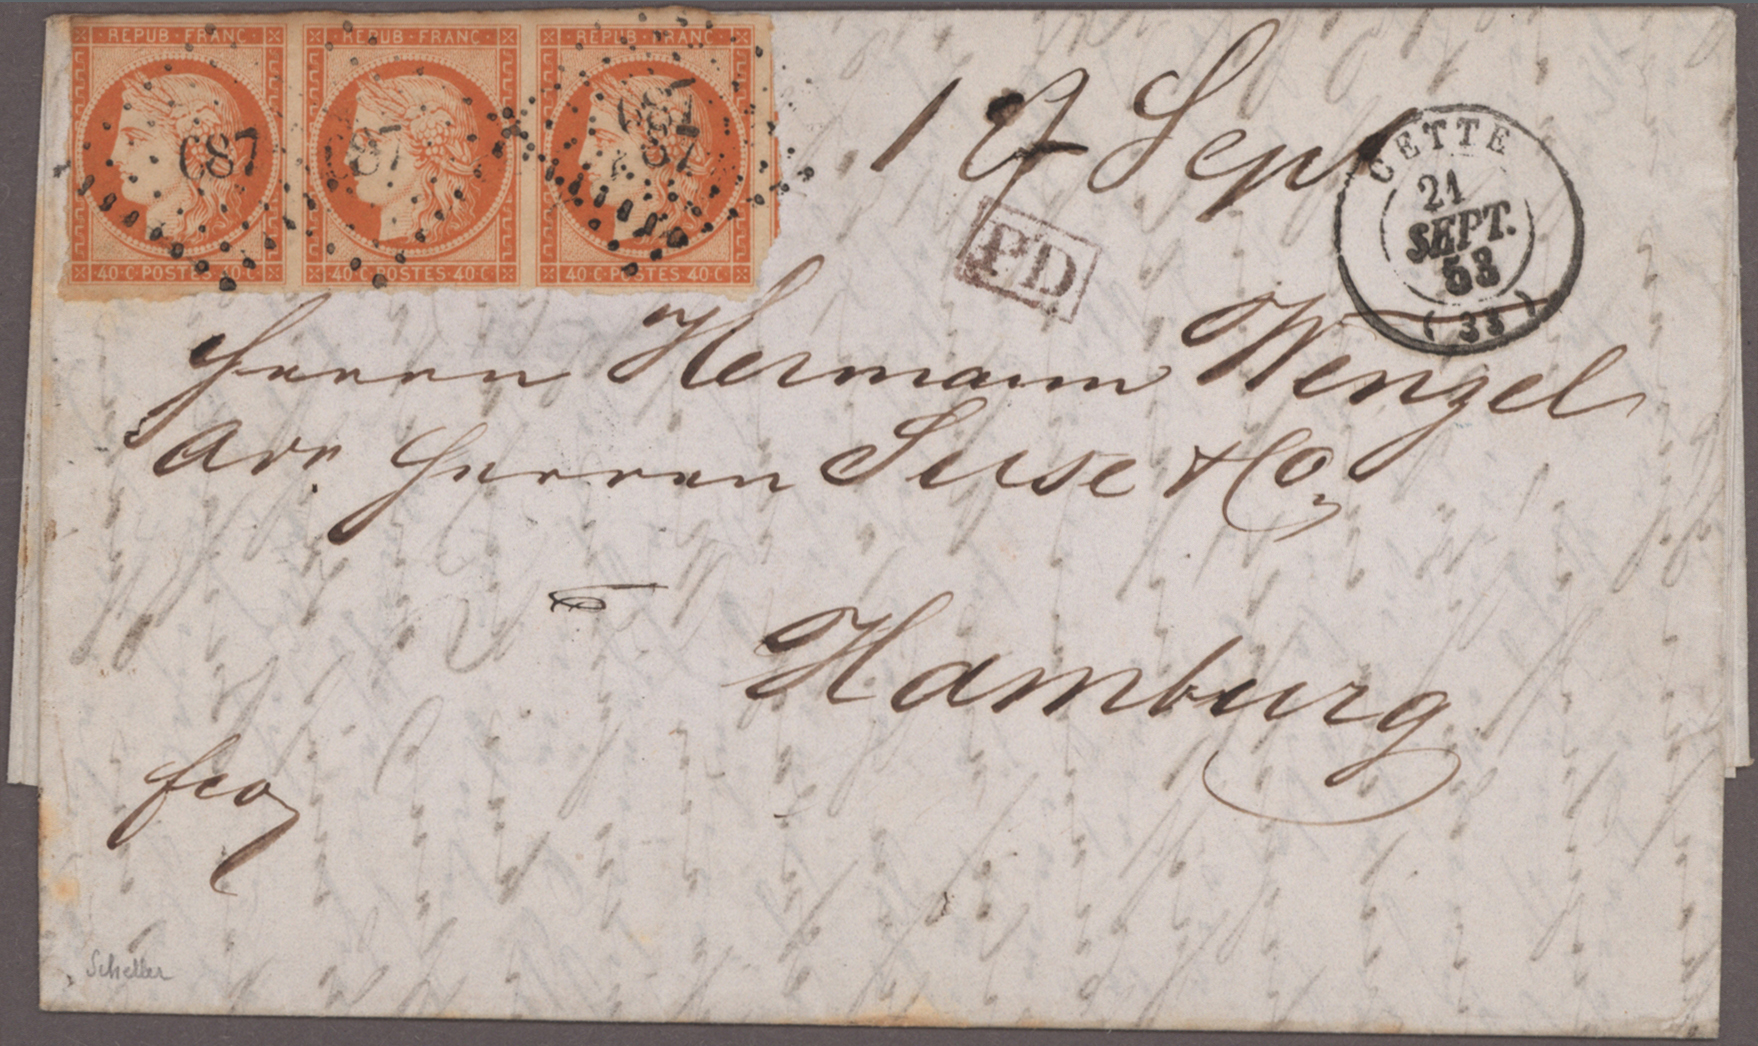 REPUB·FRANC REPUB·FRANC REPUB·FRANC
687 687 687 687
40 C·POSTES·40 C 40 C·POSTES·40 C 40 C·POSTES·40 C
Sept
PD
CETTE
21
SEPT.
53
(33)
Herrn Hermann Wenzel
Herren Suse & Co.
Hamburg
fco
Scheller